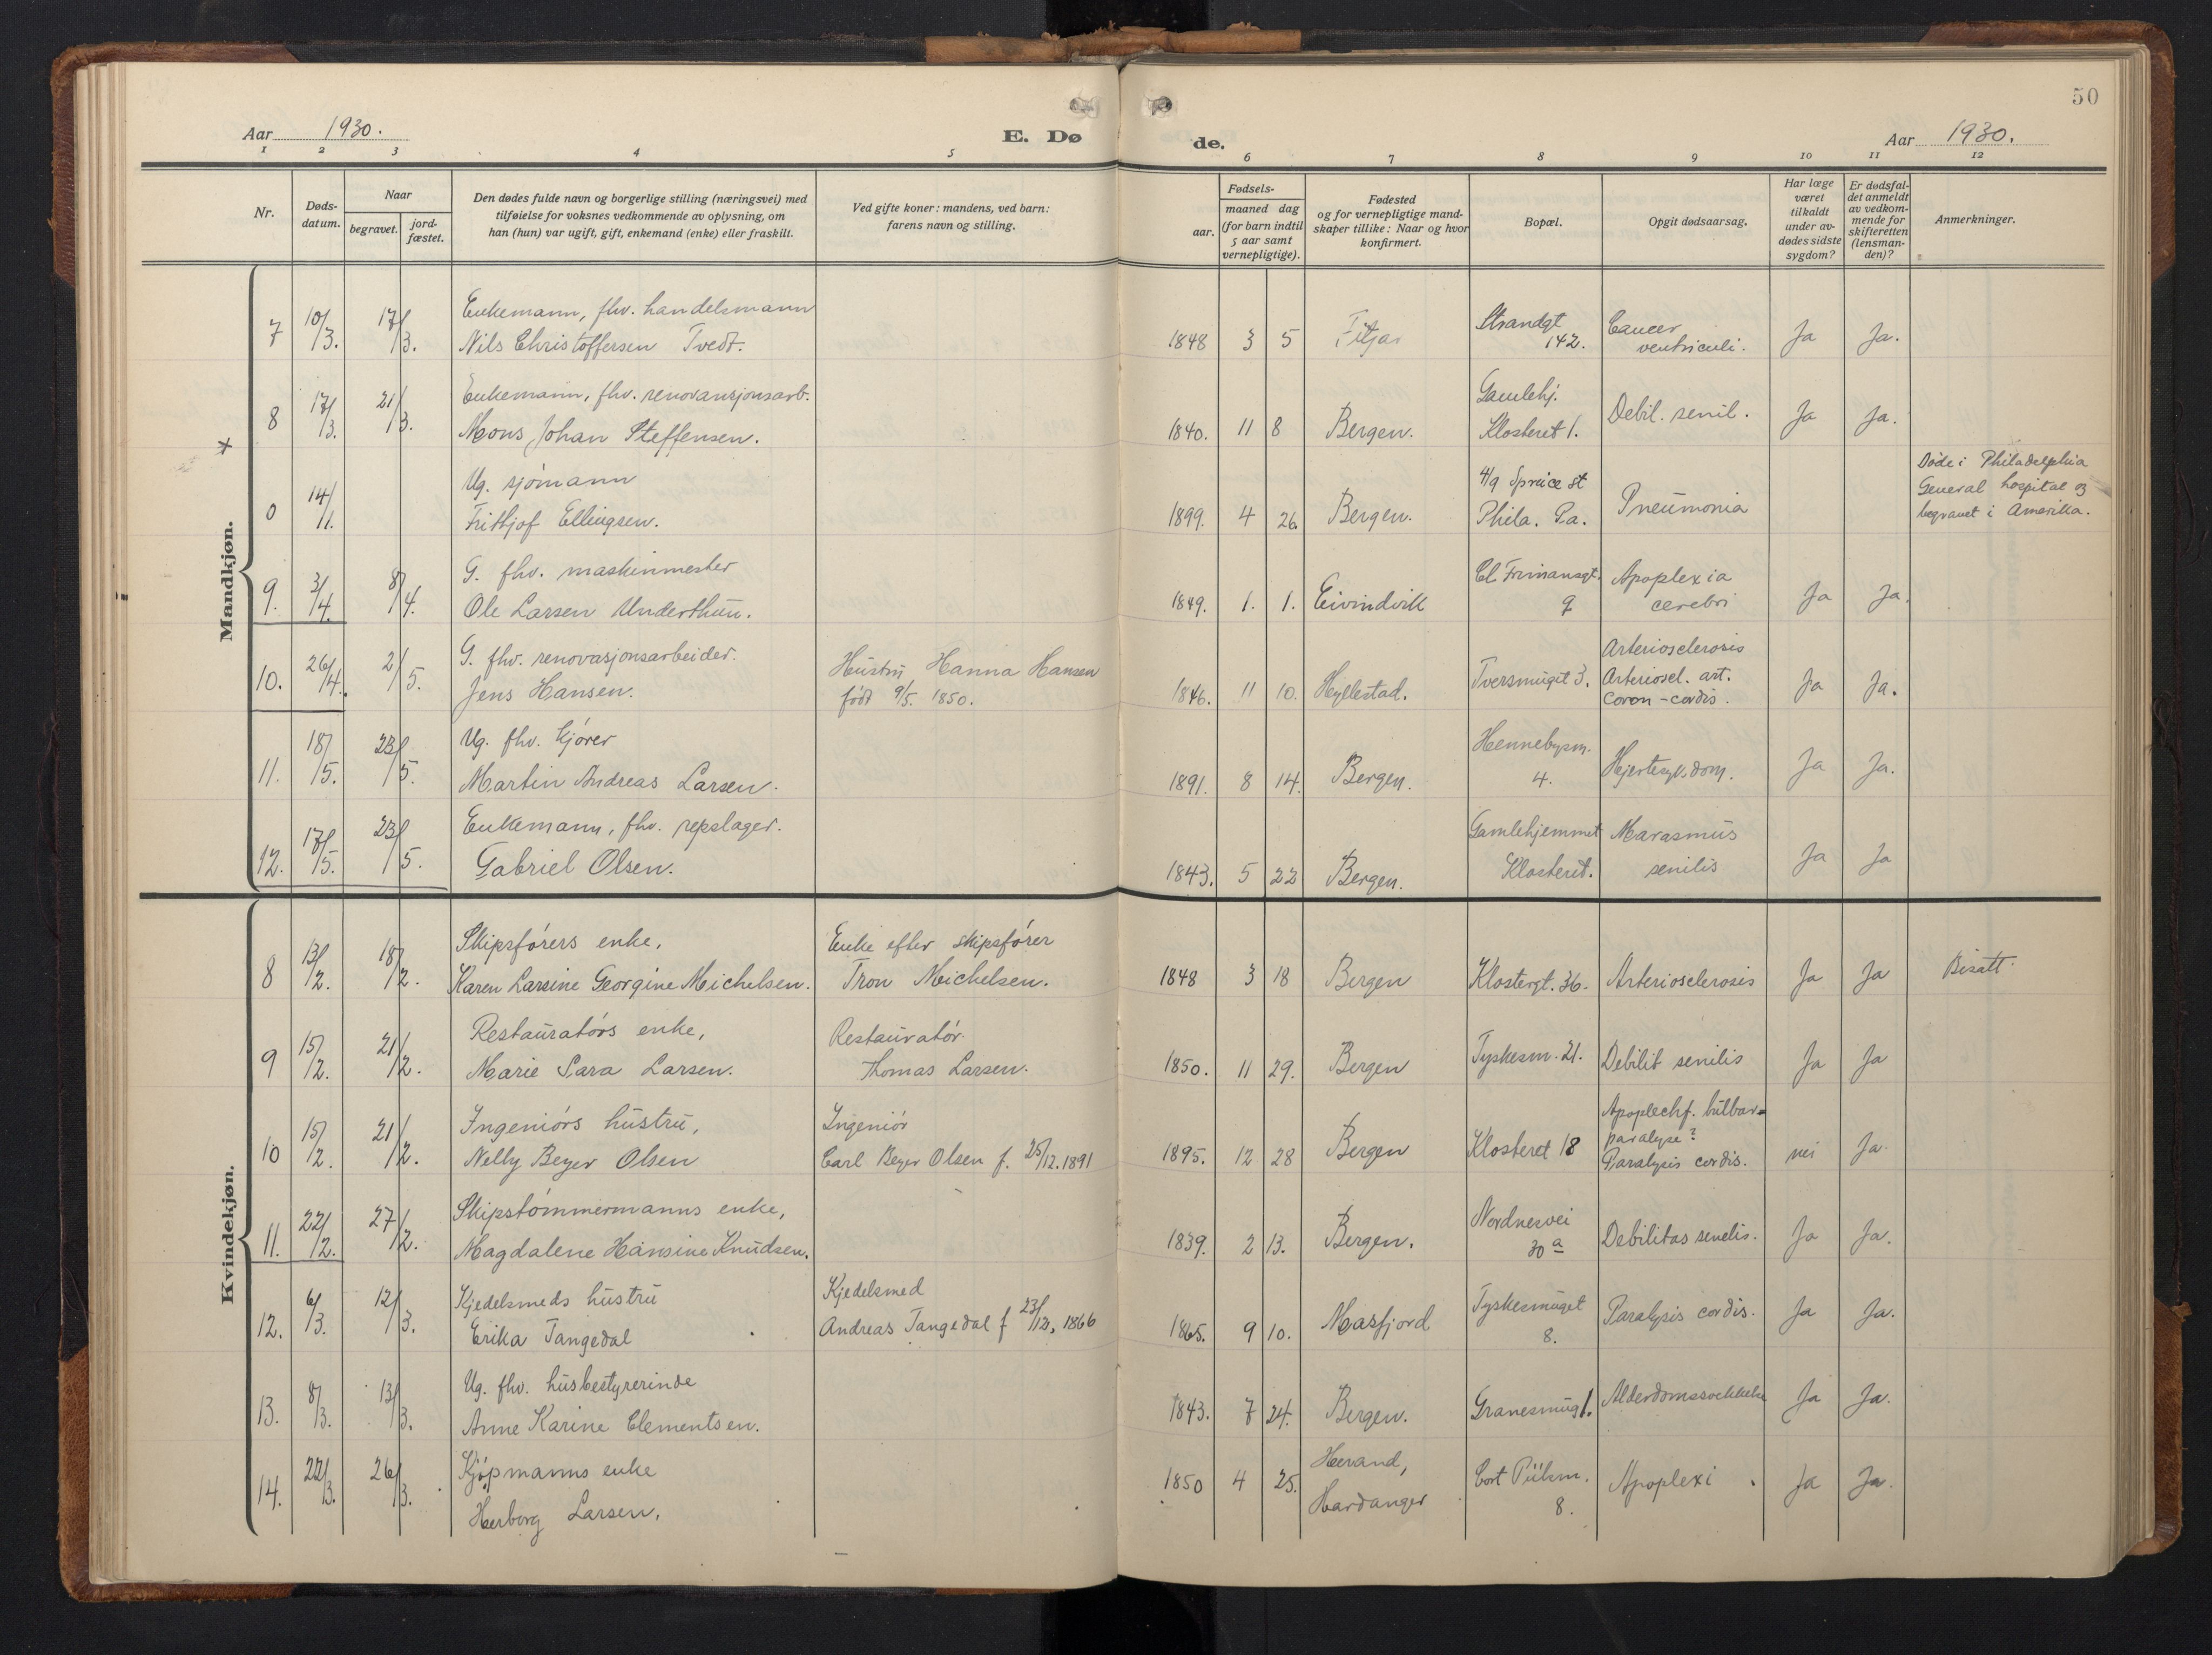 50
Aar 1930.
E. Dø
de.
Aar 1930.
1 2 3 4 5 6 7 8 9 10 11 12
Nr.
Døds-
datum.
Naar
begravet.
jord-
fæstet.
Den dødes fulde navn og borgerlige stilling (næringsvei) med
tilføielse for voksnes vedkommende av oplysning, om
han (hun) var ugift, gift, enkemand (enke) eller fraskilt.
Ved gifte koner: mandens, ved barn:
farens navn og stilling.
Fødsels-
aar.
maaned dag
(for barn indtil
5 aar samt
vernepligtige).
Fødested
og for vernepligtige mand-
skaper tillike: Naar og hvor
konfirmert.
Bopæl.
Opgit dødsaarsag.
Har læge
været
tilkaldt
under av-
dødes sidste
sygdom?
Er dødsfal-
det anmeldt
av vedkom-
mende for
skifteretten
(lensman-
den)?
Anmerkninger.
Mandkjøn.
7 10/3. 17/3.
Enkemann, fhv. handelsmann
Nils Christoffersen Tvedt.
1848 3 5 Fitjar
Strandgt
142.
Cancer
ventriculi.
Ja Ja.
8 17/3. 21/3.
Enkemann, fhv. renovansjonsarb.
Mons Johan Steffensen.
1840. 11 8 Bergen.
Gamlehj.
Klosteret 1.
Debil. senil.
Ja Ja.
0 14/1.
Ug. sjømann
Frithjof Ellingsen.
1899. 4 26. Bergen.
4/9 Spruce st
Phila. Pa.
Pneumonia
Døde i Philadelphia
General hospital og
begravet i Amerika.
9. 3/4. 8/4.
G. fhv. maskinmester
Ole Larsen Underthun.
1849. 1. 1. Eivindvik
Cl. Frimansgt.
9
Apoplexia
cerebri
Ja Ja.
10. 26/4. 2/5.
G. fhv. renovasjonsarbeider.
Jens Hansen.
Hustru Hanna Hansen
født 9/5. 1850.
1846. 11 10. Hyllestad.
Tversmuget 3.
Arteriosclerosis
Arterioscl. art.
Coron-cordis.
Ja Ja.
11. 18/5. 23/5.
Ug. fhv. kjører
Martin Andreas Larsen.
1891. 8 14. Bergen.
Hennebysm.
4.
Hjertesykdom.
Ja Ja.
12. 17/5. 23/5.
Enkemann, fhv. repslager.
Gabriel Olsen.
1843. 5 22 Bergen.
Gamlehjemmet
Klosteret.
Marasmus
senilis
Ja Ja
Kvindekjøn.
8 13/2. 18/2.
Skipsførers enke,
Karen Larsine Georgine Michelsen.
Enke efter skipsfører
Tron Michelsen.
1848 3 18 Bergen Klostergt. 36. Arteriosclerosis Ja Ja Bisatt.
9 15/2. 21/2.
Restauratørs enke,
Marie Sara Larsen.
Restauratør.
Thomas Larsen.
1850. 11 29. Bergen Tyskesm. 21. Debilit senilis Ja Ja
10 15/2. 21/2.
Ingeniørs hustru,
Nelly Beyer Olsen
Ingeniør
Carl Beyer Olsen f. 25/12. 1891
1895. 12 28 Bergen Klosteret 18
Apoplechf. bulbar=
paralyse?
Paralysis cordis.
nei Ja.
11. 22/2. 27/2.
Skipstømmermanns enke,
Magdalene Hansine Knudsen.
1839. 2 13. Bergen.
Nordnesvei
30 a
Debilitas senelis. Ja Ja.
12. 6/3. 12/3.
Kjedelsmeds hustru
Erika Tangedal
Kjedelsmed
Andreas Tangedal f 23/12, 1866
1865. 9 10. Masfjord
Tyskesmuget
8.
Paralysis cordis. Ja Ja.
13. 8/3. 13/3.
Ug. fhv. husbestyrerinde
Anne Karine Clementsen.
1843. 7 24. Bergen. Granesmug 1. Alderdomssvekkelse Ja Ja.
14. 22/3. 26/3.
Kjøpmanns enke
Herborg Larsen.
1850 4 25.
Herand,
Hardanger
Cort Piilsm.
8.
Apoplexi Ja Ja.